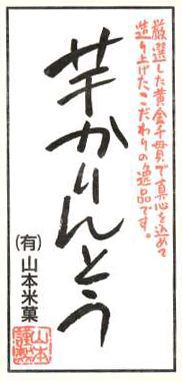 厳選した黄金千貫で真心を込めて
造り上げたこだわりの逸品です。
芋かりんとう
(有)山本米菓
山本
謹製